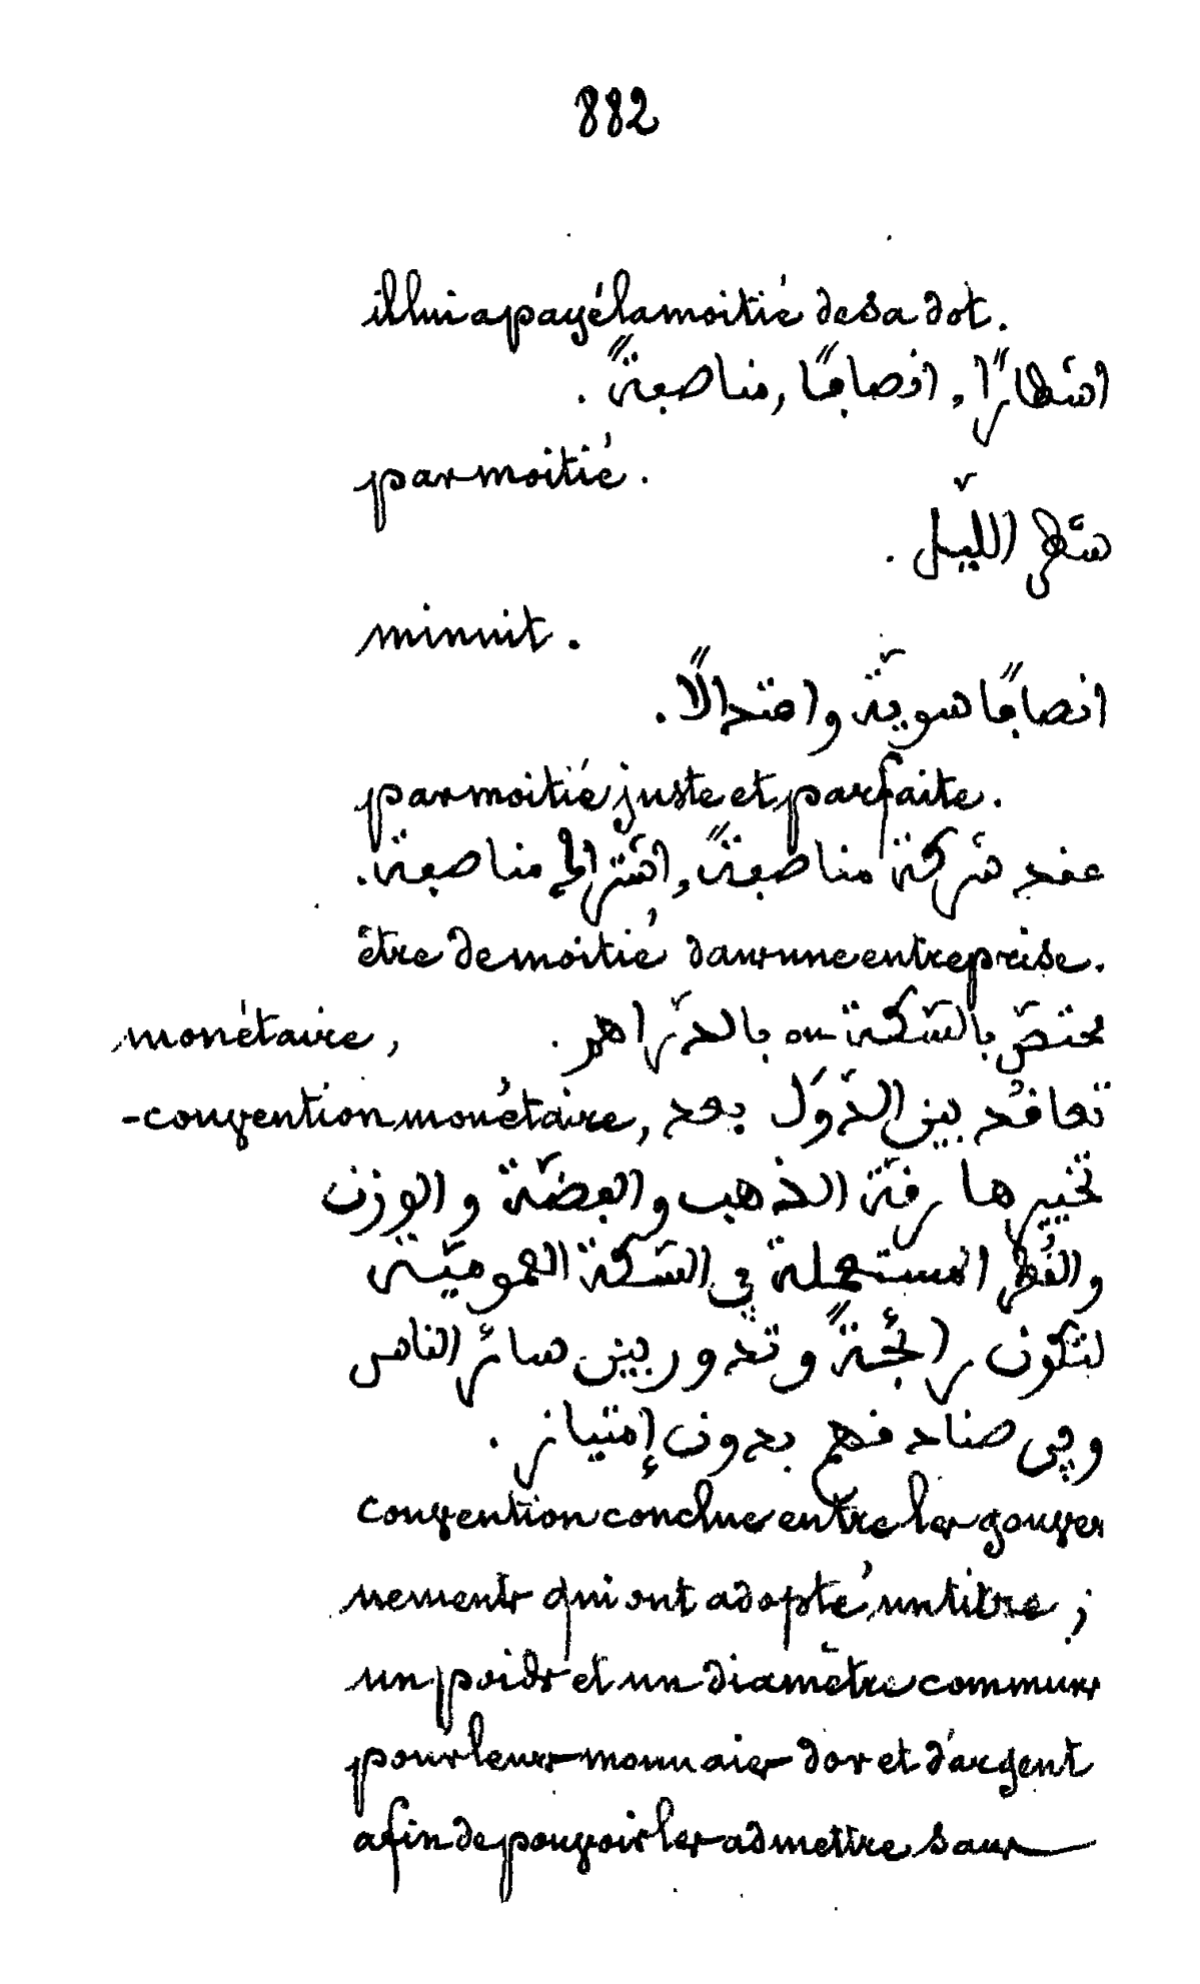 882
il lui a payé la moitié de sa dot.
اشطارًا, انصافًا, مناصفةً.
par moitié.
شطر اللّيل.
minuit.
انصافًا سويّة واعتدالًا.
par moitié juste et parfaite.
عقد شركة مناصفةً, اشتراك مناصفة.
être de moitié dans une entreprise.
monétaire, مختصّ بالسّكة ou بالدّراهم.
-convention monétaire, تعاقُد بين الدّوَل بعد
تخييرها رقّة الذهب والفضّة والوزن
والقُطر المستعملة في السّكة العموميّة
لتكون رائجةً وتدور بين سائر الناس
وفي صنادقهم بدون إمتياز.
convention conclue entre les gouver
nements qui ont adopté un titre;
un poids et un diamètre communs
pour leurs monnaies d'or et d'argent
afin de pouvoir les admettre sans